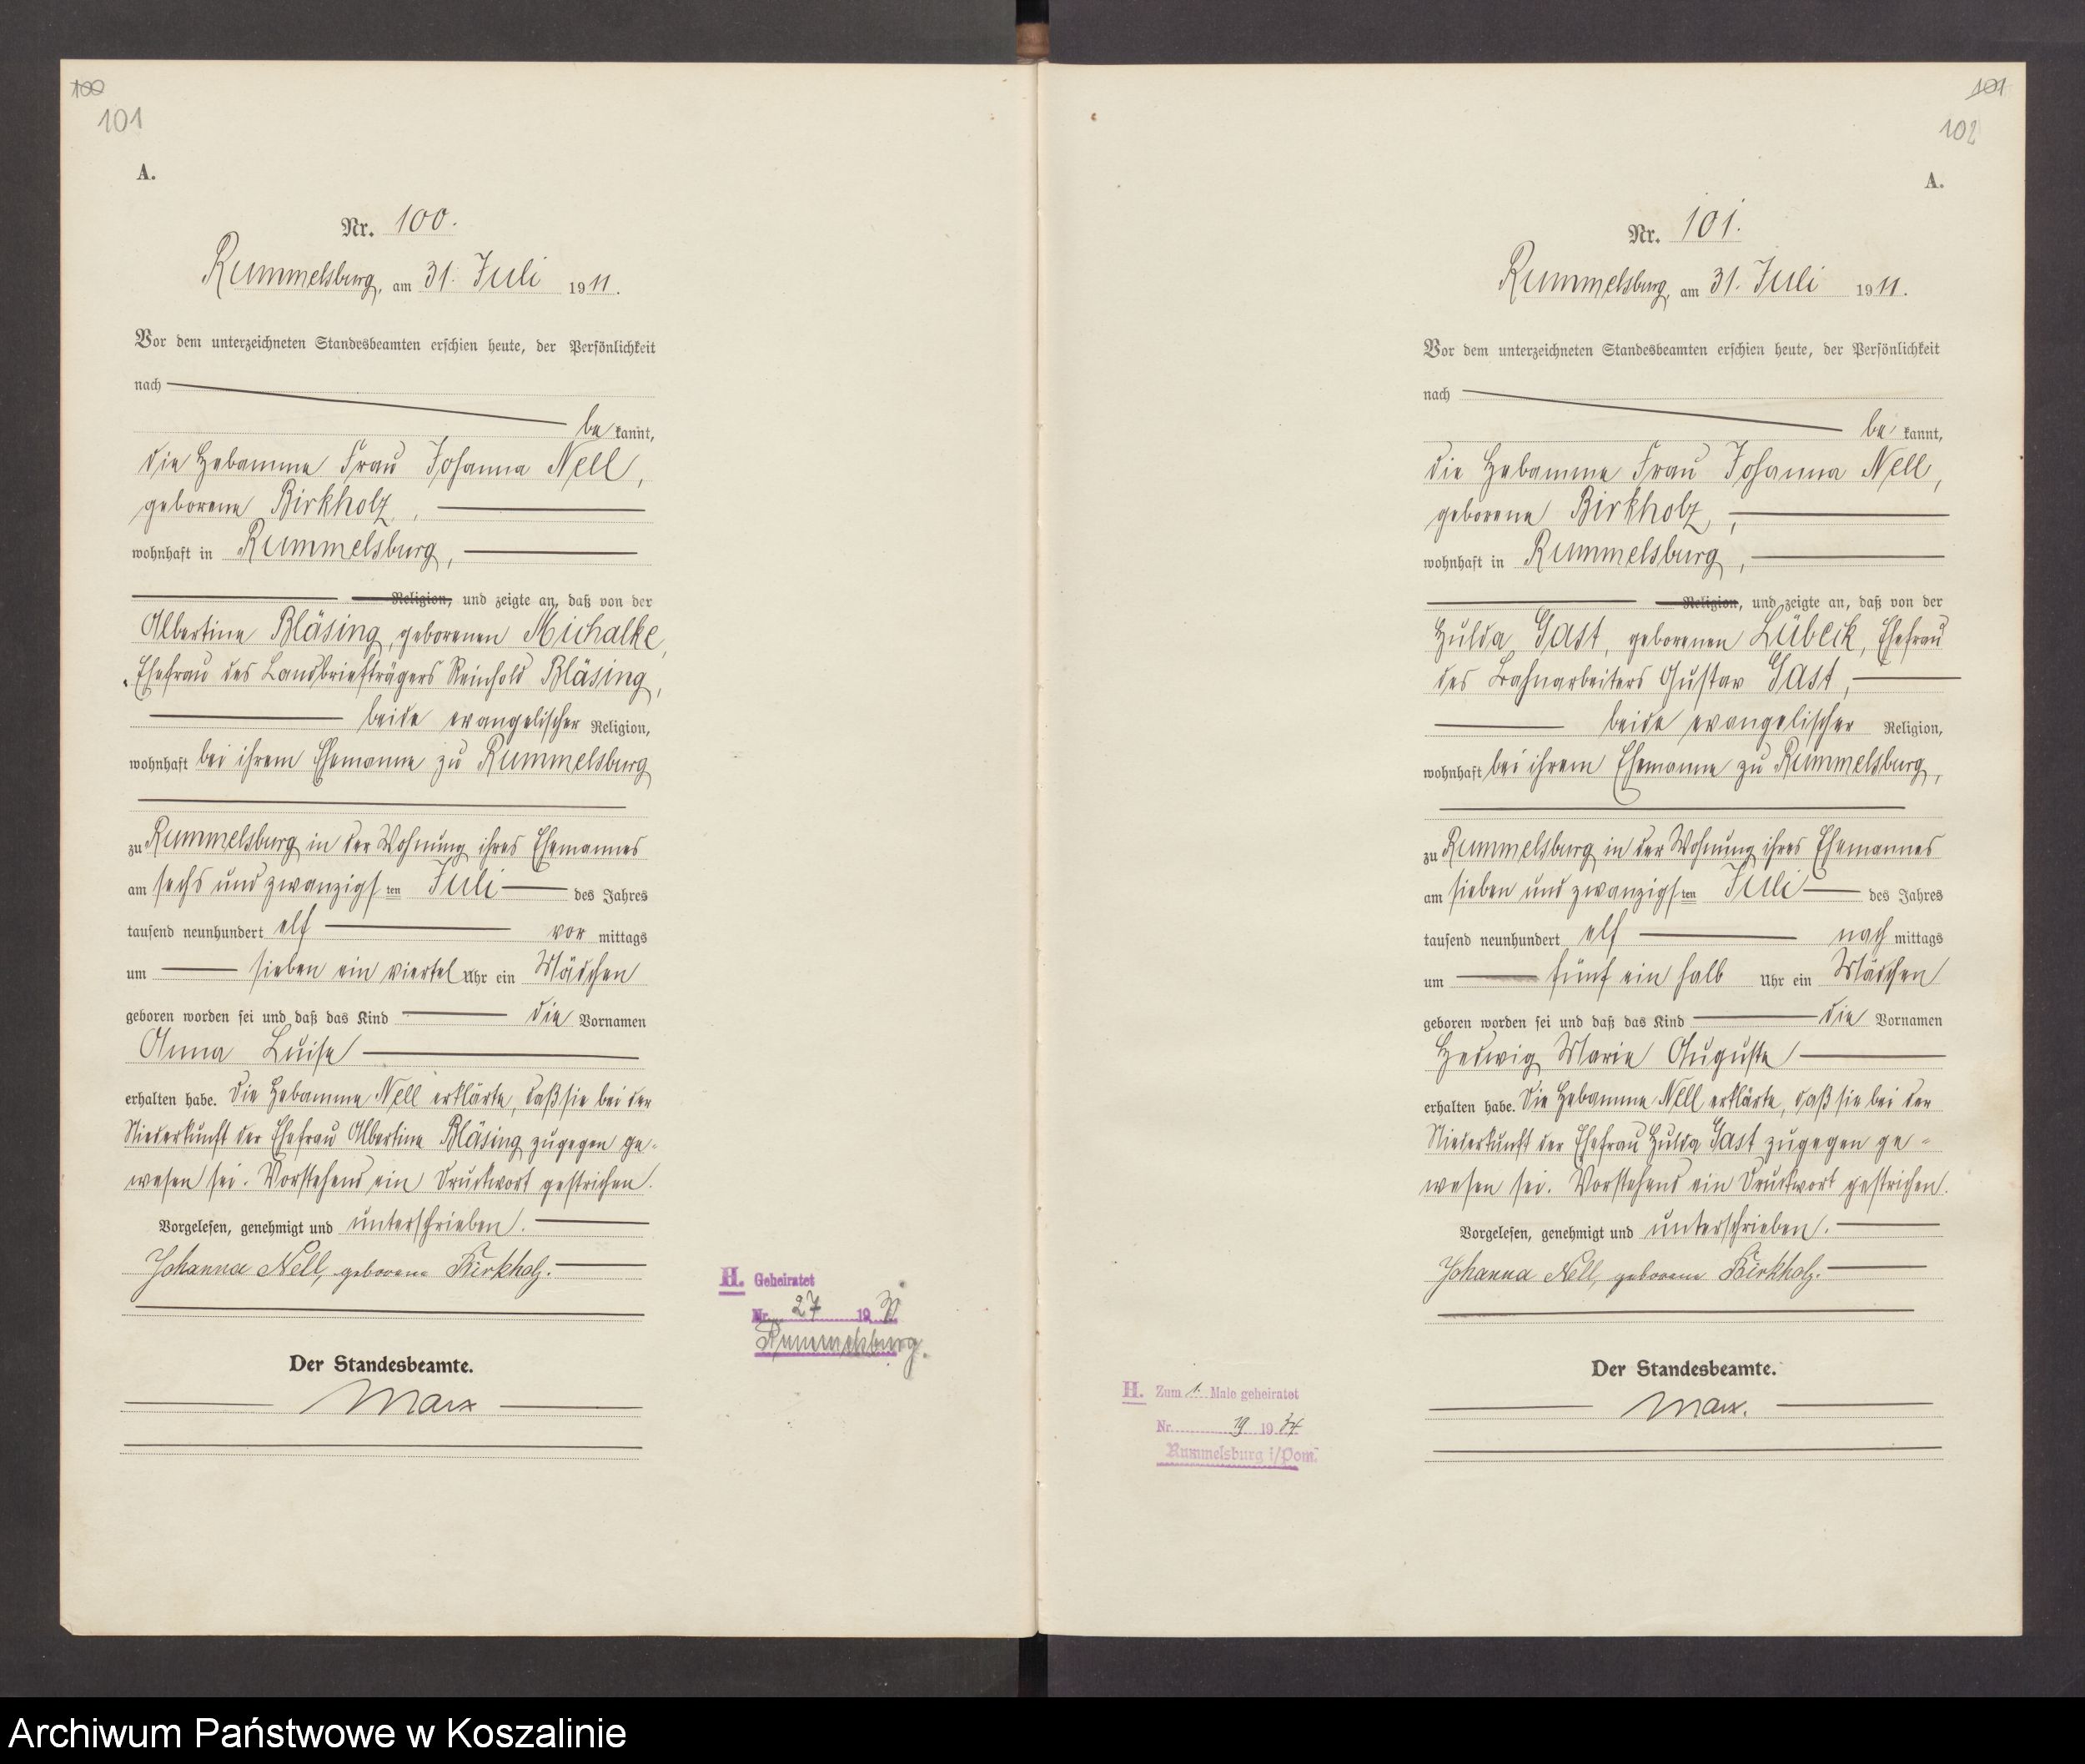 100
101
A.
Nr. 100.
Rummelsburg, am 31. Juli 1911.
Vor dem unterzeichneten Standesbeamten erschien heute, der Persönlichkeit
nach
be kannt,
die Hebamme Frau Johanna Nell,
geborene Birkholz,
wohnhaft in Rummelsburg,
Religion, und zeigte an, daß von der
Albertine Bläsing, geborenen Michalke,
Ehefrau des Landbriefträgers Reinhold Bläsing,
beide evangelischer Religion,
wohnhaft bei ihrem Ehemanne zu Rummelsburg
zu Rummelsburg in der Wohnung ihres Ehemannes
am sechs und zwanzigsten Juli des Jahres
tausend neunhundert elf vor mittags
um sieben ein viertel Uhr ein Mädchen
geboren worden sei und daß das Kind die Vornamen
Anna Luise
erhalten habe. Die Hebamme Nell erklärte, daß sie bei der
Niederkunft der Ehefrau Albertine Bläsing zugegen ge-
wesen sei. Vorstehend ein Druckwort gestrichen.
Vorgelesen, genehmigt und unterschrieben.
Johanna Nell, geborene Birkholz.
Der Standesbeamte.
Marx
H. Geheiratet
Nr. 27 19
Rummelsburg.
101
102
A.
Nr. 101.
Rummelsburg, am 31. Juli 1911.
Vor dem unterzeichneten Standesbeamten erschien heute, der Persönlichkeit
nach
be kannt,
die Hebamme Frau Johanna Nell,
geborene Birkholz,
wohnhaft in Rummelsburg,
Religion, und zeigte an, daß von der
Hulda Gast, geborenen Lübeck, Ehefrau
des Bahnarbeiters Gustav Gast,
beide evangelischer Religion,
wohnhaft bei ihrem Ehemanne zu Rummelsburg,
zu Rummelsburg in der Wohnung ihres Ehemannes
am sieben und zwanzigsten Juli des Jahres
tausend neunhundert elf nach mittags
um fünf ein halb Uhr ein Mädchen
geboren worden sei und daß das Kind die Vornamen
Hedwig Marie Auguste
erhalten habe. Die Hebamme Nell erklärte, daß sie bei der
Niederkunft der Ehefrau Hulda Gast zugegen ge-
wesen sei. Vorstehend ein Druckwort gestrichen.
Vorgelesen, genehmigt und unterschrieben.
Johanna Nell, geborene Birkholz.
Der Standesbeamte.
Marx.
H. Zum 1. Male geheiratet
Nr. 19 1934
Rummelsburg i/Pom.
Archiwum Państwowe w Koszalinie